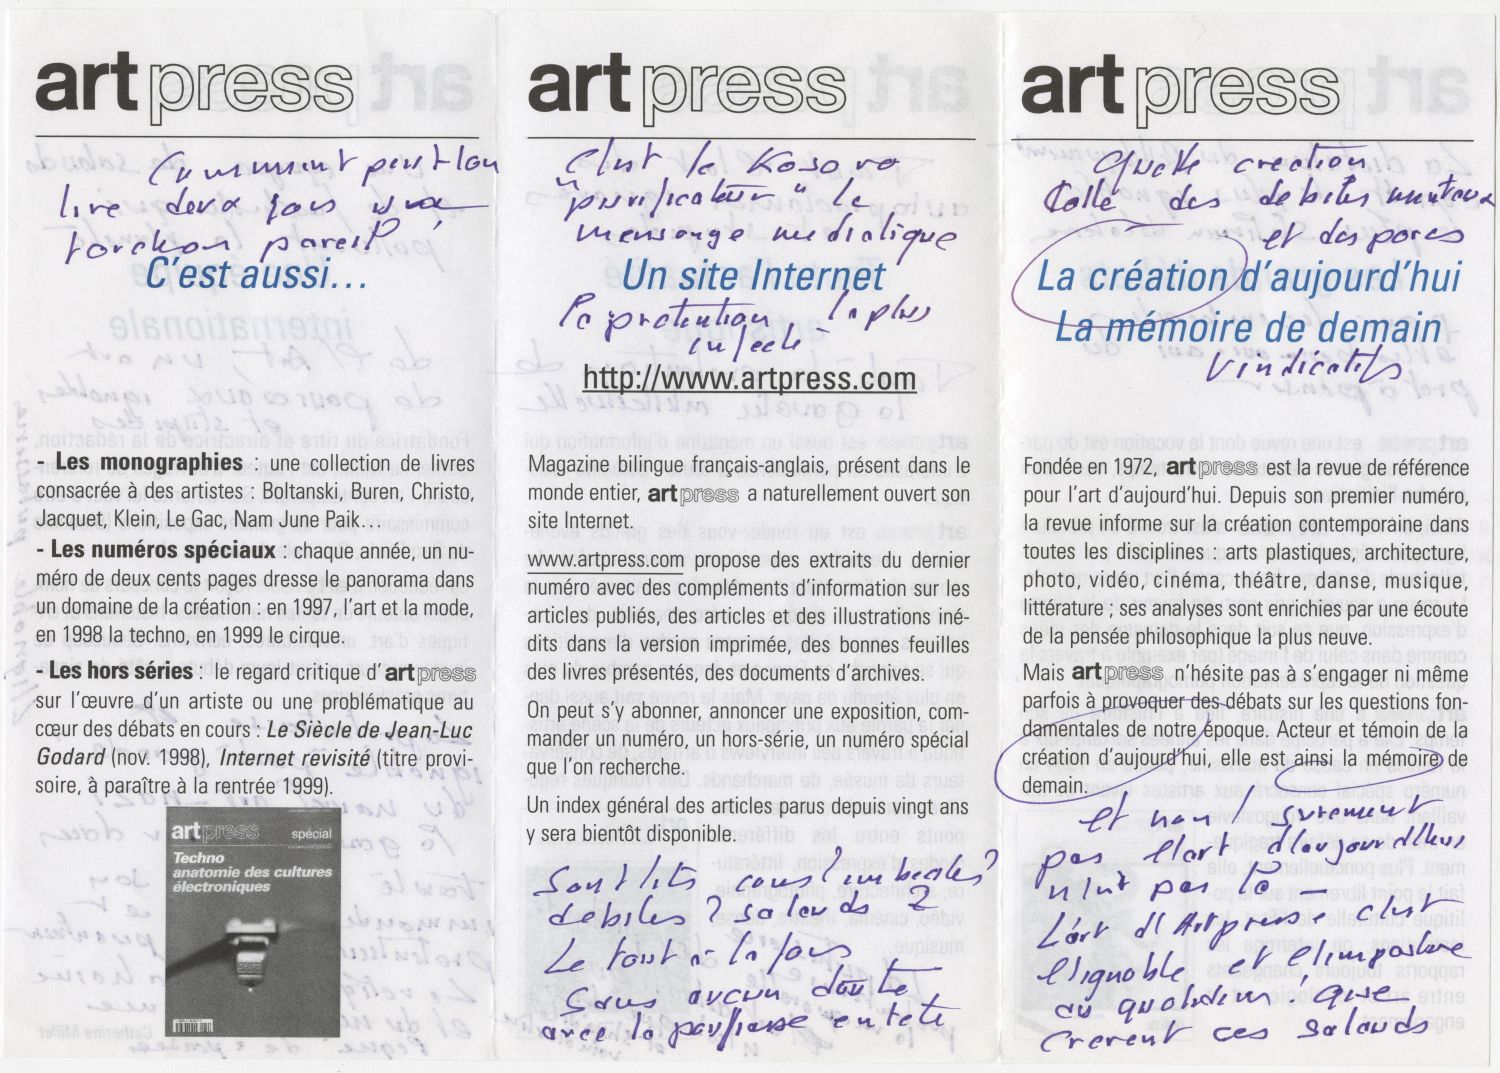 artpress
Comment peut-on
lire deux fois un
torchon pareil
C'est aussi...
- Les monographies : une collection de livres
consacrée à des artistes : Boltanski, Buren, Christo,
Jacquet, Klein, Le Gac, Nam June Paik...
- Les numéros spéciaux : chaque année, un nu-
méro de deux cents pages dresse le panorama dans
un domaine de la création : en 1997, l'art et la mode,
en 1998 la techno, en 1999 le cirque.
- Les hors séries : le regard critique d'artpress
sur l'œuvre d'un artiste ou une problématique au
cœur des débats en cours : Le Siècle de Jean-Luc
Godard (nov. 1998), Internet revisité (titre provi-
soire, à paraître à la rentrée 1999).
artpress
spécial
Techno
anatomie des cultures
électroniques
artpress
C'est le Kosovo
"purificateur" le
mensonge médiatique
Un site Internet
la prétention la plus
infecte
http://www.artpress.com
Magazine bilingue français-anglais, présent dans le
monde entier, artpress a naturellement ouvert son
site Internet.
www.artpress.com propose des extraits du dernier
numéro avec des compléments d'information sur les
articles publiés, des articles et des illustrations iné-
dits dans la version imprimée, des bonnes feuilles
des livres présentés, des documents d'archives.
On peut s'y abonner, annoncer une exposition, com-
mander un numéro, un hors-série, un numéro spécial
que l'on recherche.
Un index général des articles parus depuis vingt ans
y sera bientôt disponible.
Sont-ils cons ? imbéciles ?
débiles ? salauds ?
Le tout à la fois
Sans aucun doute
avec la pouffiasse en tête
artpress
Quelle création
Celle des débiles mentaux
et des porcs
La création d'aujourd'hui
La mémoire de demain
vindicatifs
Fondée en 1972, artpress est la revue de référence
pour l'art d'aujourd'hui. Depuis son premier numéro,
la revue informe sur la création contemporaine dans
toutes les disciplines : arts plastiques, architecture,
photo, vidéo, cinéma, théâtre, danse, musique,
littérature ; ses analyses sont enrichies par une écoute
de la pensée philosophique la plus neuve.
Mais artpress n'hésite pas à s'engager ni même
parfois à provoquer des débats sur les questions fon-
damentales de notre époque. Acteur et témoin de la
création d'aujourd'hui, elle est ainsi la mémoire de
demain.
et non ! surement
pas l'art d'aujourd'hui
n'est pas là -
L'art d'Artpresse c'est
l'ignoble et l'imposture
au quotidien, que
crerent ces salauds